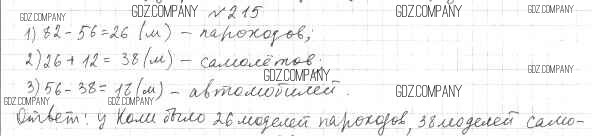 GDZ.COMPANY №215 GDZ.COMPANY GDZ.COMPANY
1) 82 - 56 = 26 (м) - пароходов;
GDZ.COMPANY GDZ.COMPANY
2) 26 + 12 = 38 (м) - самолётов;
GDZ.COMPANY
3) 56 - 38 = 18 (м) - автомобилей.
GDZ.COMPANY GDZ.COMPANY GDZ.COMPANY
Ответ: у Коли было 26 моделей пароходов, 38 моделей само-